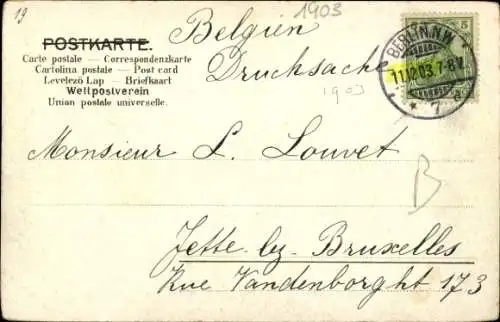 19
1903
Belgien
Drucksache
POSTKARTE.
Carte postale — Correspondenzkarte
Cartolina postale — Post card
Levelező Lap — Briefkaart
Weltpostverein
Union postale universelle.
5
BERLIN, N.W.
11.12.03. 7-8 V.
* 7 a
1903
Monsieur L. Louvet
B
Jette by Bruxelles
Rue Vandenborght 173